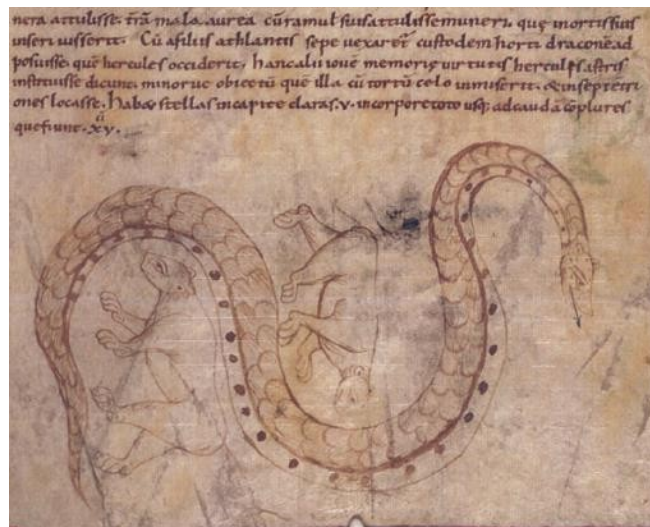 nera attulisse. trā mala aurea cū ramulis suis attulisse muneri. quę in ortis suis
inseri iusserit. Cū a filiis athlantis sepe uexaret custodem horti draconē ad
posuisse. quē hercules occiderit. hanc ali iouē memorię uirtutis herculis astris
instituisse dicunt. minoruę obiectū quē illa cū tortū celo inmiserit. & in septētri
ones locasse. habet stellas in capite claras .v. in corpore toto usq; ad caudā cōplures
que fiunt .xv.